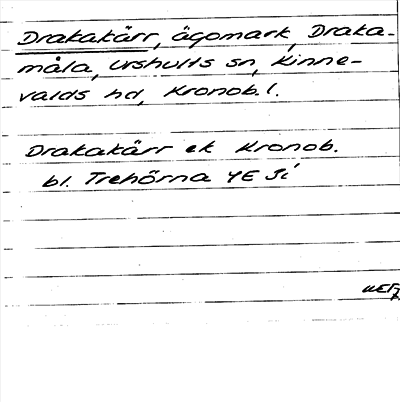 Drakakärr, ägomark, Draka-
måla, Urshults sn, Kinne-
valds hd, Kronob. l.
Drakakärr ek Kronob.
bl. Trehörna 4E 5i